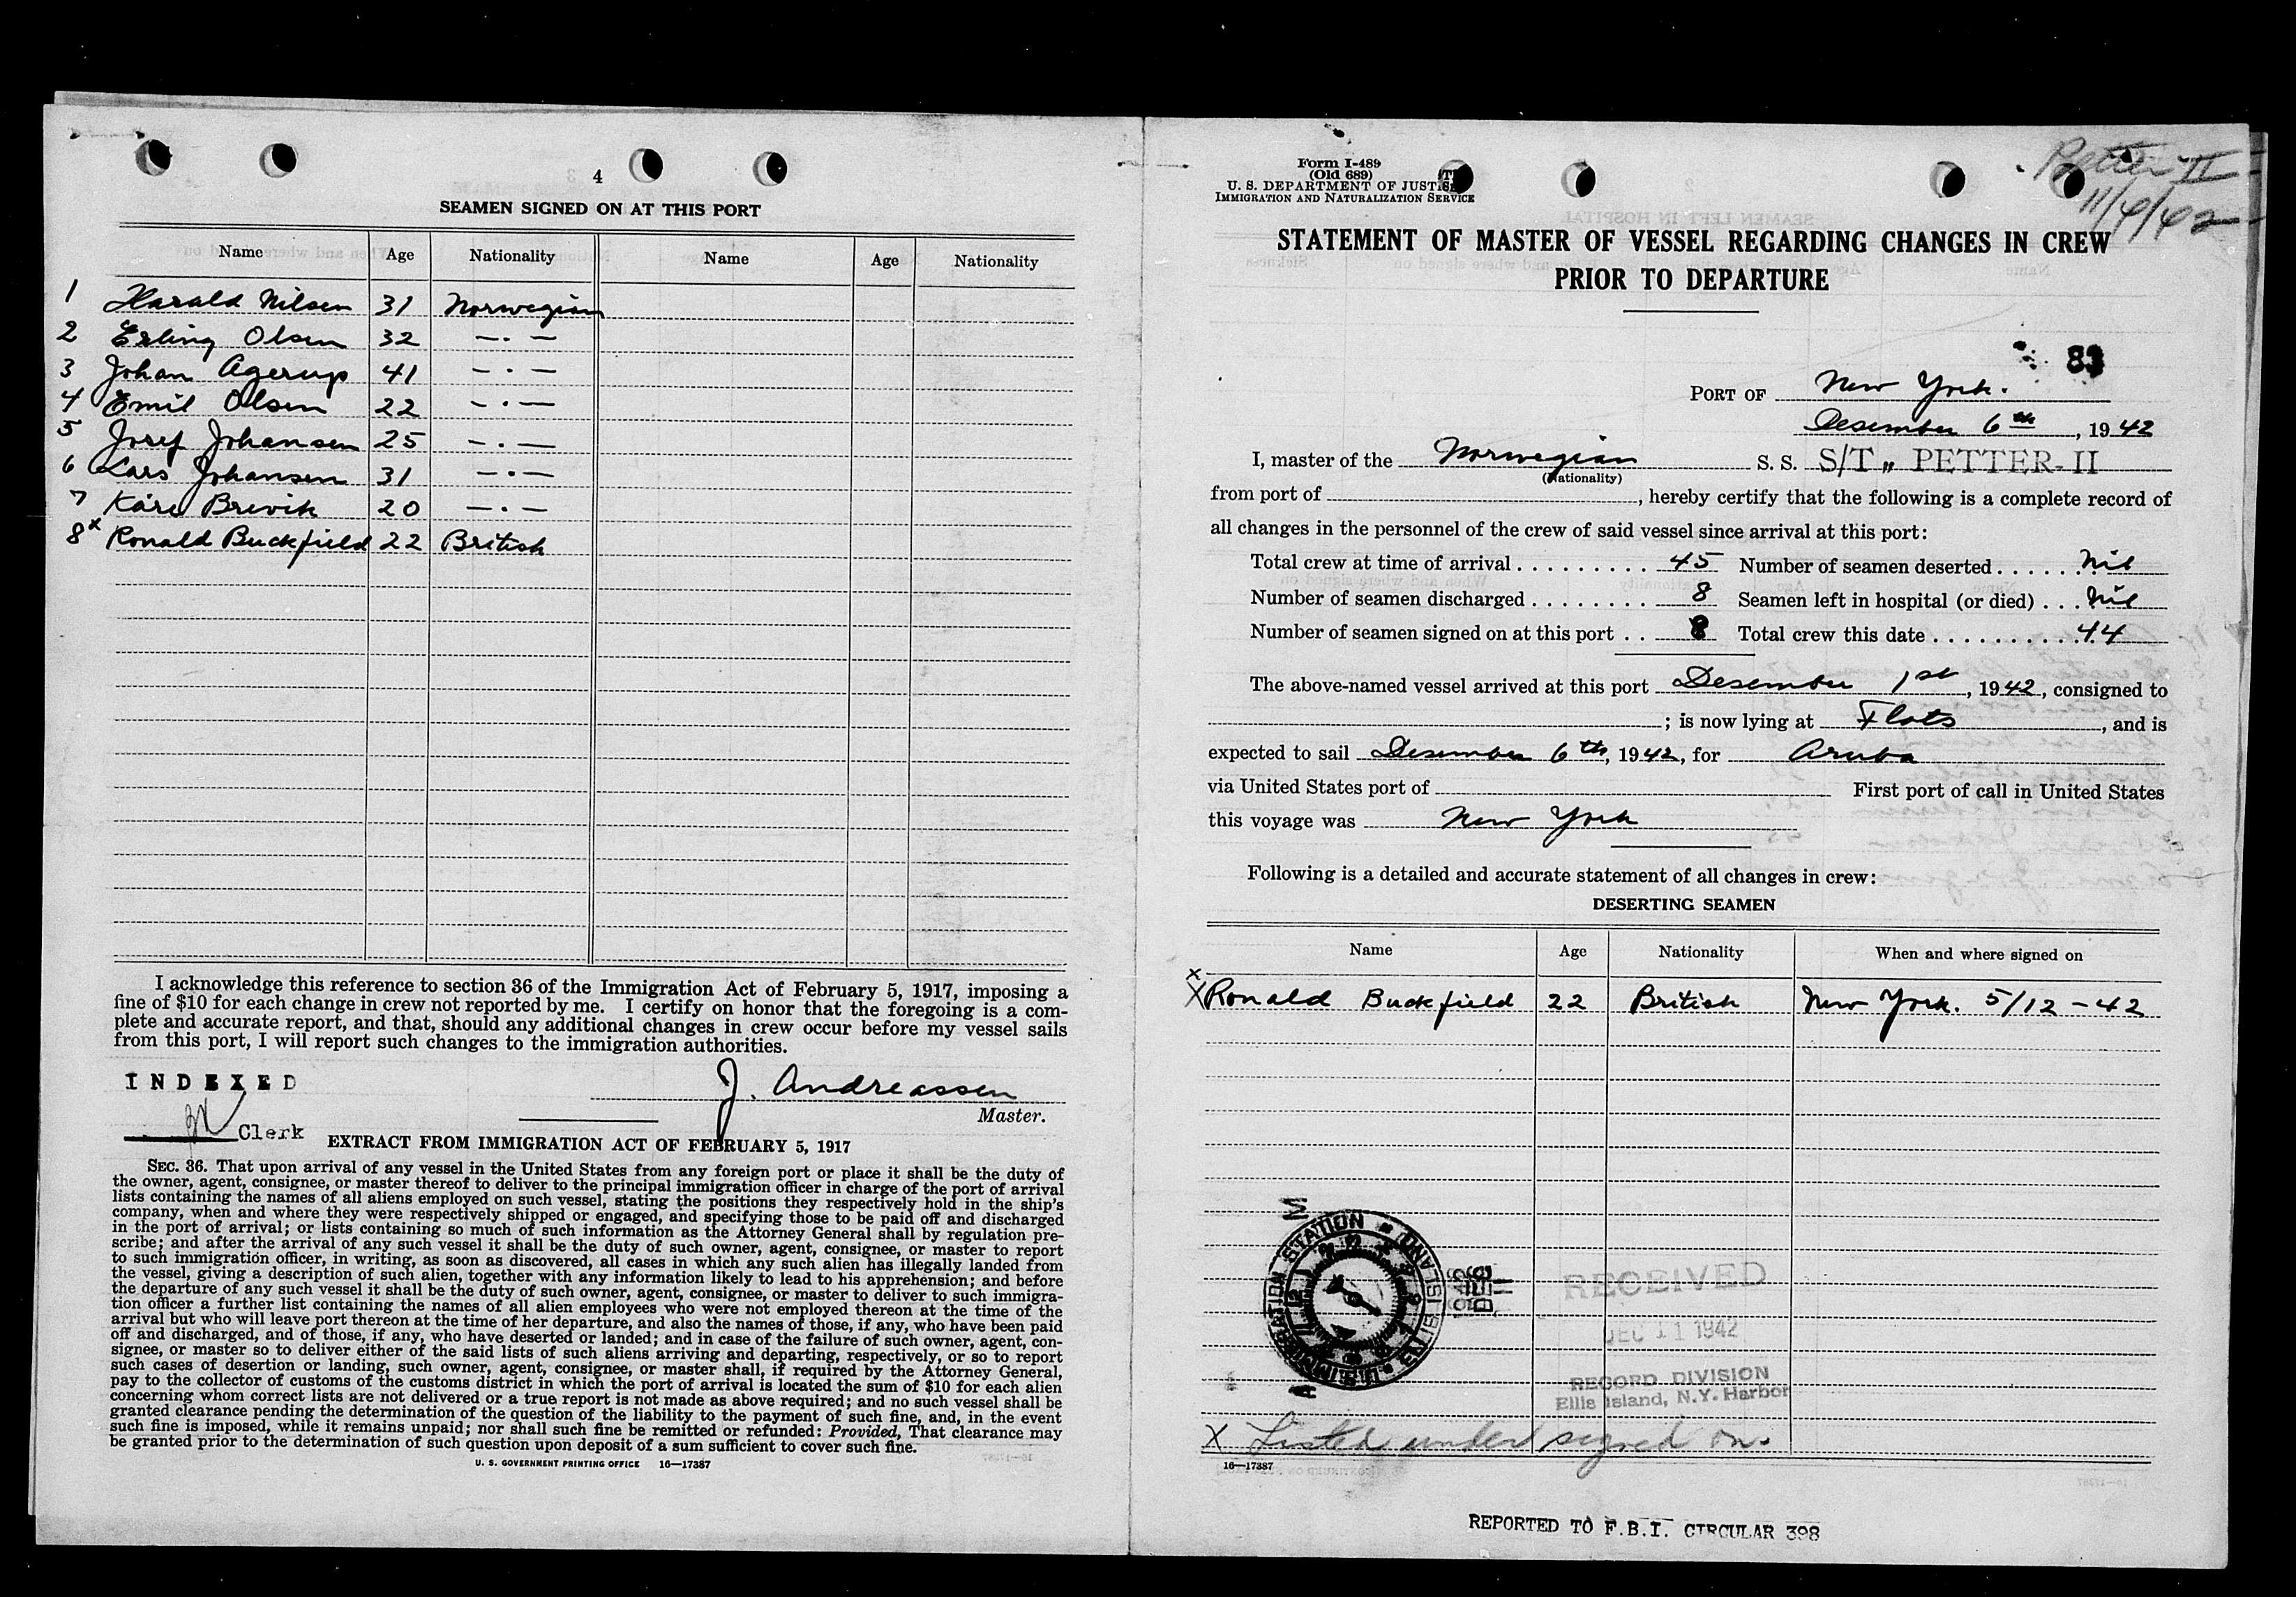 4
SEAMEN SIGNED ON AT THIS PORT
Name Age Nationality Name Age Nationality
1 Harald Nilsen 31 Norwegian
2 Erling Olsen 32 —·—
3 Johan Agerup 41 —·—
4 Emil Olsen 22 —·—
5 Josef Johansen 25 —·—
6 Lars Johansen 31 —·—
7 Kåre Brevik 20 —·—
8x Ronald Buckfield 22 British
I acknowledge this reference to section 36 of the Immigration Act of February 5, 1917, imposing a
fine of $10 for each change in crew not reported by me. I certify on honor that the foregoing is a com-
plete and accurate report, and that, should any additional changes in crew occur before my vessel sails
from this port, I will report such changes to the immigration authorities.
INDEXED
J. Andreassen
Master.
Clerk
EXTRACT FROM IMMIGRATION ACT OF FEBRUARY 5, 1917
SEC. 36. That upon arrival of any vessel in the United States from any foreign port or place it shall be the duty of
the owner, agent, consignee, or master thereof to deliver to the principal immigration officer in charge of the port of arrival
lists containing the names of all aliens employed on such vessel, stating the positions they respectively hold in the ship's
company, when and where they were respectively shipped or engaged, and specifying those to be paid off and discharged
in the port of arrival; or lists containing so much of such information as the Attorney General shall by regulation pre-
scribe; and after the arrival of any such vessel it shall be the duty of such owner, agent, consignee, or master to report
to such immigration officer, in writing, as soon as discovered, all cases in which any such alien has illegally landed from
the vessel, giving a description of such alien, together with any information likely to lead to his apprehension; and before
the departure of any such vessel it shall be the duty of such owner, agent, consignee, or master to deliver to such immigra-
tion officer a further list containing the names of all alien employees who were not employed thereon at the time of the
arrival but who will leave port thereon at the time of her departure, and also the names of those, if any, who have been paid
off and discharged, and of those, if any, who have deserted or landed; and in case of the failure of such owner, agent, con-
signee, or master so to deliver either of the said lists of such aliens arriving and departing, respectively, or so to report
such cases of desertion or landing, such owner, agent, consignee, or master shall, if required by the Attorney General,
pay to the collector of customs of the customs district in which the port of arrival is located the sum of $10 for each alien
concerning whom correct lists are not delivered or a true report is not made as above required; and no such vessel shall be
granted clearance pending the determination of the question of the liability to the payment of such fine, and, in the event
such fine is imposed, while it remains unpaid; nor shall such fine be remitted or refunded: Provided, That clearance may
be granted prior to the determination of such question upon deposit of a sum sufficient to cover such fine.
U. S. GOVERNMENT PRINTING OFFICE 16—17387
Form I-489
(Old 689)
U. S. DEPARTMENT OF JUSTICE
IMMIGRATION AND NATURALIZATION SERVICE
Petter II
11/4/42
STATEMENT OF MASTER OF VESSEL REGARDING CHANGES IN CREW
PRIOR TO DEPARTURE
83
PORT OF New York.
Desember 6th, 1942
I, master of the Norwegian S. S. S/T „ PETTER-II
(Nationality)
from port of , hereby certify that the following is a complete record of
all changes in the personnel of the crew of said vessel since arrival at this port:
Total crew at time of arrival 45 Number of seamen deserted Nil
Number of seamen discharged 8 Seamen left in hospital (or died) Nil
Number of seamen signed on at this port 8 Total crew this date 44
The above-named vessel arrived at this port Desember 1st, 1942, consigned to
; is now lying at Flats, and is
expected to sail Desember 6th, 1942, for Aruba
via United States port of First port of call in United States
this voyage was New York
Following is a detailed and accurate statement of all changes in crew:
DESERTING SEAMEN
Name Age Nationality When and where signed on
x
X Ronald Buckfield 22 British New York. 5/12-42
U.S. IMMIGRATION STATION ELLIS ISLAND
A M
1942 DEC 11
RECEIVED
DEC 11 1942
RECORD DIVISION
Ellis Island, N.Y. Harbor
X Listed under signed on.
16—17387
REPORTED TO F.B.I. CIRCULAR 398